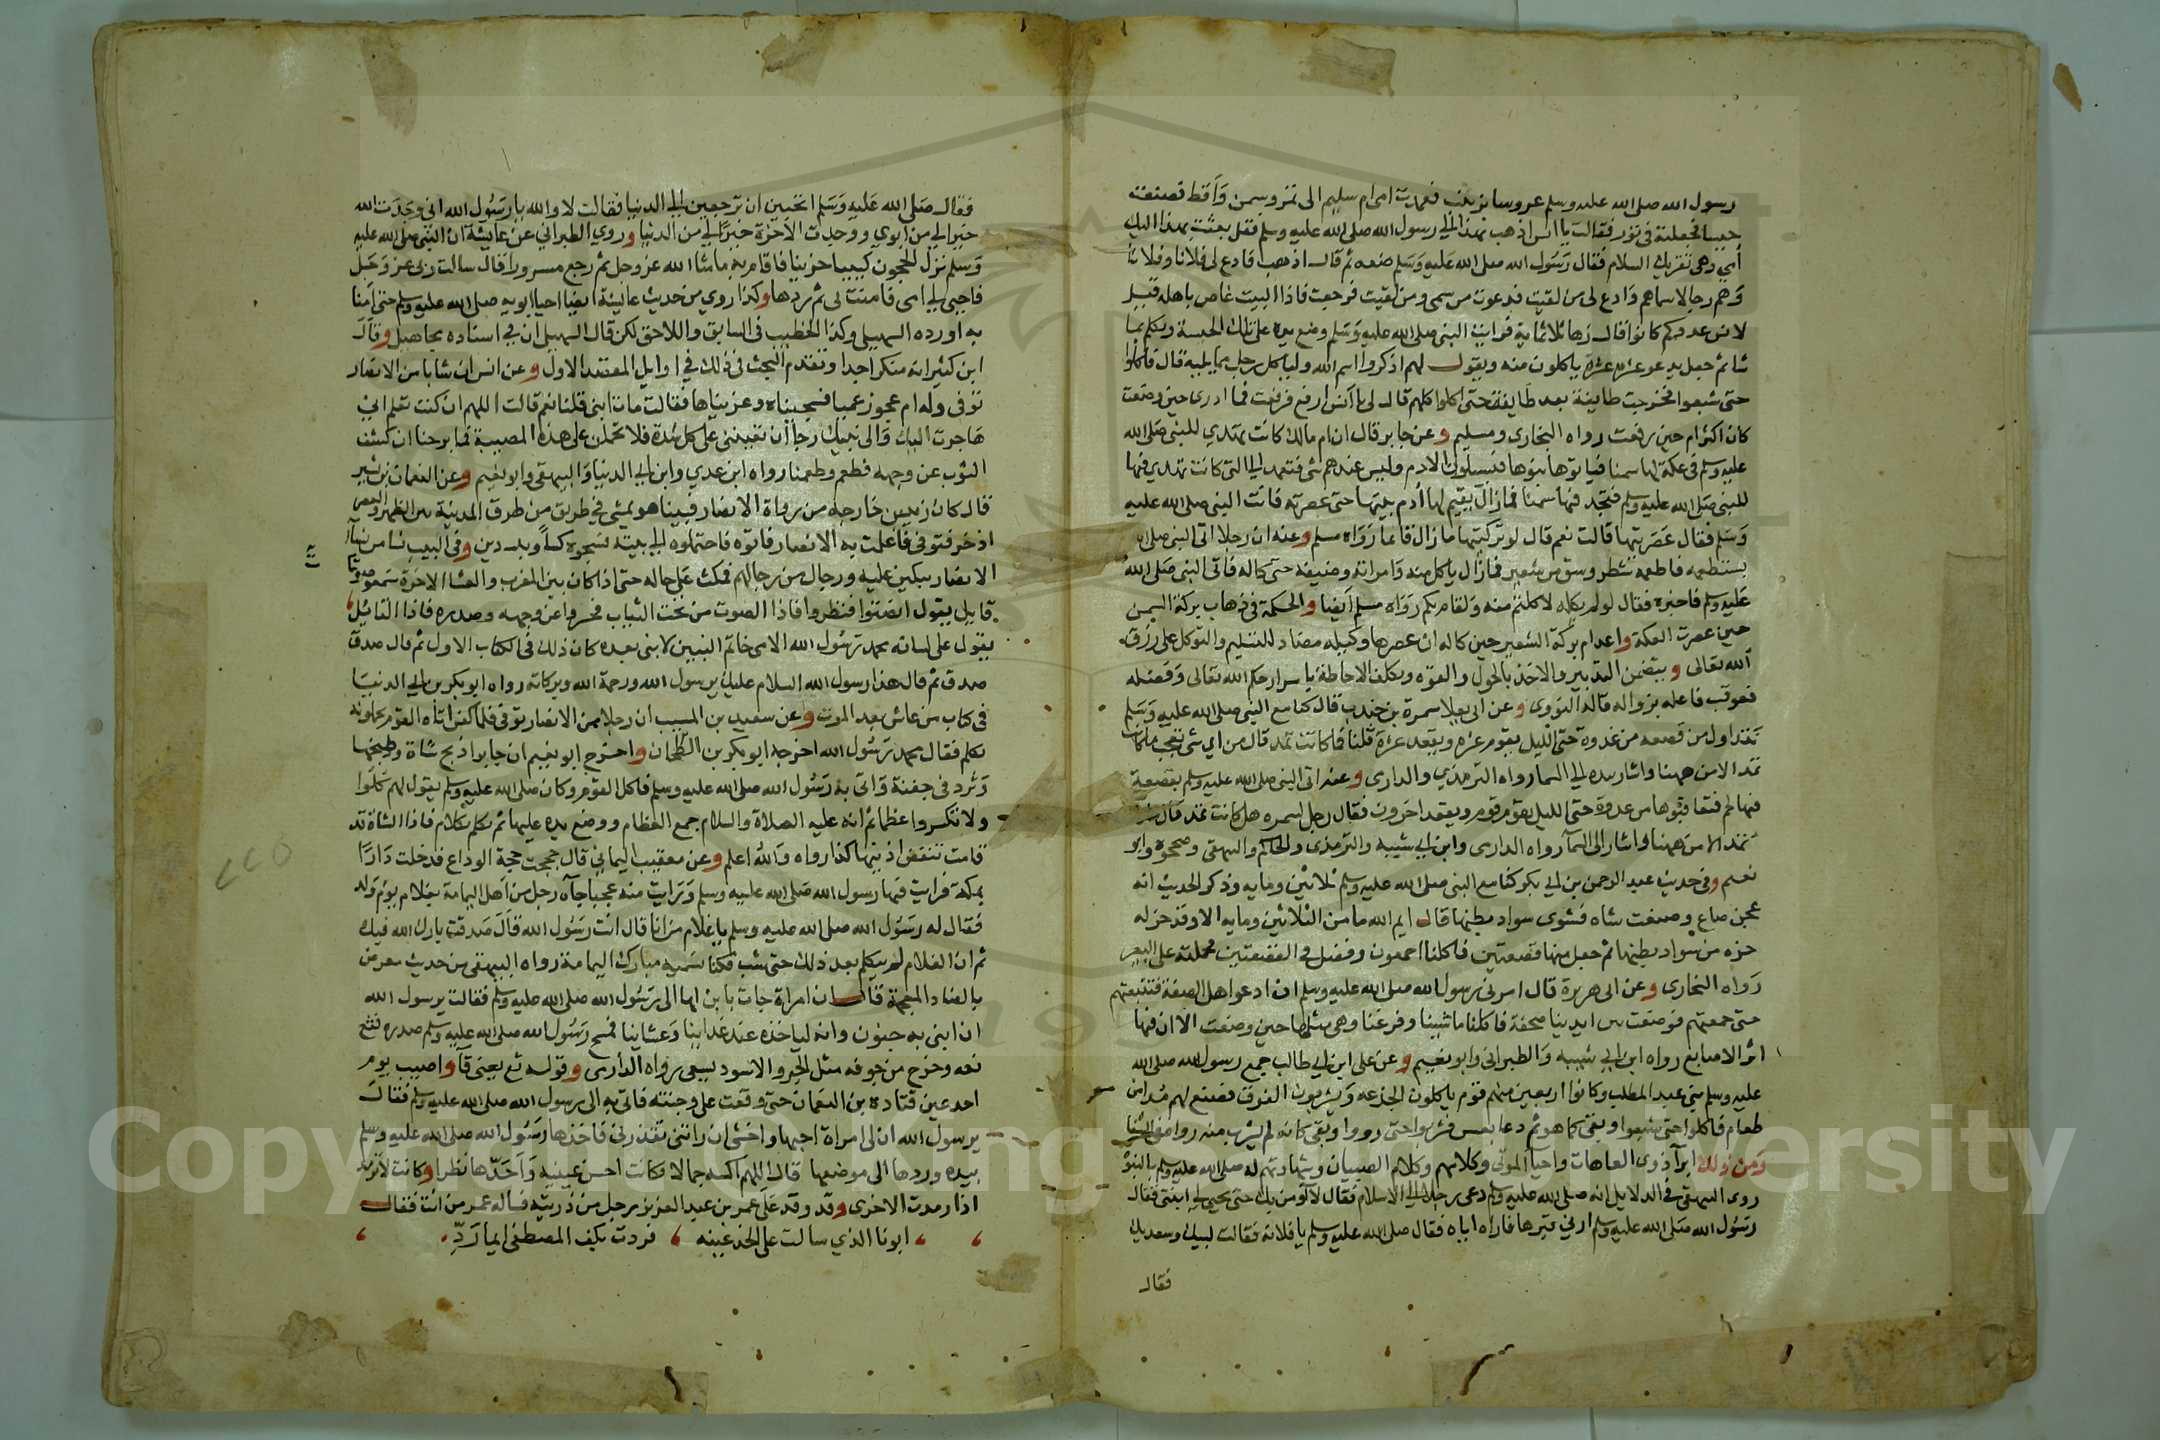 رسول الله صلى الله عليه وسلم عروسا بزينب فعمدت امي ام سليم الى تمر وسمن واقط فصنعت
حيسا فجعلته في تور فقالت يا انس اذهب بهذا الى رسول الله صلى الله عليه وسلم فقل بعثت بهذا اليك
أمي وهي تقريك السلام فقال رسول الله صلى الله عليه وسلم ضعه ثم قال اذهب فادع لي فلانا وفلانا
رجالا سماهم وادع لي من لقيت فدعوت من سمى ومن لقيت فرجعت فاذا البيت غاص باهله قيل
لانس عددكم كانوا قال زها ثلاثماية فرايت النبي صلى الله عليه وسلم وضع يده على تلك الحيسة وتكلم بما
شا ثم جعل يدعو عشرة عشرة ياكلون منه ويقول لهم اذكروا اسم الله ولياكل كل رجل مما يليه قال فاكلوا
حتى شبعوا فخرجت طايفة بعد طايفة حتى اكلوا كلهم قال لي يا انس ارفع فرفعت فما ادري حين وضعت
كان اكثر ام حين رفعت رواه البخاري ومسلم وعن جابر قال ان ام مالك كانت تهدي للنبي صلى الله
عليه وسلم في عكة لها سمنا فياتوها بنوها فيسيلون الادم وليس عندهم شي فتعمد الى التي كانت تهدي فيها
للنبي صلى الله عليه وسلم فتجد فيها سمنا فما زال يقيم لها أدم بيتها حتى عصرته فاتت النبي صلى الله عليه
وسلم فقال عصرتيها قالت نعم قال لو تركتيها ما زال قايما رواه مسلم وعنه ان رجلا اتى النبي صلى الله
يستطعمه فاطعمه شطر وسق من شعير فما زال ياكل منه وامراته وضيفه حتى كاله فاتى النبي صلى الله
عليه وسلم فاخبره فقال لو لم تكله لاكلتم منه ولقام بكم رواه مسلم أيضا والحكمة في ذهاب بركة السمن
حين عصرت العكة واعدام بركة الشعير حين كاله ان عصرها وكيله مضاد للتسليم والتوكل على رزق
الله تعالى ويتضمن التدبير والاخذ بالحول والقوة وتكلف الاحاطة باسرار حكم الله تعالى وفضله
فعوقب فاعله بزواله قاله النووي وعن ابي العلا سمرة بن جندب قال كنا مع النبي صلى الله عليه وسلم
نتداول من قصعه من غدوة حتى الليل يقوم عشرة ويقعد عشرة قلنا فما كانت تمد قال من اي شي تعجب ما كانت
تمد الا من ههنا واشار بيده الى السما رواه الترمذي والدارمي وعنه اتى النبي صلى الله عليه وسلم بقصعة
فيها لحم فتعاقبوها من غدوة حتى الليل يقوم قوم ويقعد اخرون فقال رجل لسمره هل كانت تمد قال
تمد الا من ههنا واشار الى السما رواه الدارمي وابن ابي شيبه والترمذي والحاكم والبيهقي وصححوه وابو
نعيم وفي حديث عبد الرحمن بن ابي بكر كنا مع النبي صلى الله عليه وسلم ثلاثين وماية وذكر الحديث انه
عجن صاع وصنعت شاه فشوى سواد بطنها قال ايم الله ما من الثلاثين وماية الا وقد حز له
حزه من سواد بطنها ثم جعل منها قصعتين فاكلنا اجمعون وفضل في القصعتين فحملته على البعير
رواه البخاري وعن ابي هريرة قال امرني رسول الله صلى الله عليه وسلم ان ادعو اهل الصفة فتتبعتهم
حتى جمعتهم فوضعت بين ايدينا صحفة فاكلنا ما شينا وفرغنا وهي مثلها حين وضعت الا ان فيها
اثر الاصابع رواه ابن ابي شيبه والطبراني وابو نعيم وعن علي ابن ابي طالب جمع رسول الله صلى الله
عليه وسلم بني عبد المطلب وكانوا اربعين منهم قوم ياكلون الجذعه ويشربون الفرق فصنع لهم مدا من
طعام فاكلوا حتى شبعوا وبقي كما هو ثم دعا بعس فشربوا حتى رووا وبقي كانه لم يشرب منه رواه في الشفا
ومن ذلك ابرآ ذوي العاهات واحيآ الموتى وكلامهم وكلام الصبيان وشهادتهم له صلى الله عليه وسلم بالنبوة
روى البيهقي في الدلايل انه صلى الله عليه وسلم دعى رجلا الى الاسلام فقال لا اومن بك حتى يحيى لي ابنتي فقال
رسول الله صلى الله عليه وسلم ارني قبرها فاراه اياه فقال صلى الله عليه وسلم يا فلانة فقالت لبيك وسعديك
فقال
فقال صلى الله عليه وسلم اتحبين ان ترجعين الى الدنيا فقالت لا والله يا رسول الله اني وجدت الله
خيرا لي من ابوي ووجدت الاخرة خيرا لي من الدنيا وروي الطبراني عن عايشة ان النبي صلى الله عليه
وسلم نزل الحجون كييبا حزينا فاقام به ما شا الله عز وجل ثم رجع مسرورا قال سالت ربي عز وجل
فاحيى لي امي فامنت بي ثم ردها وكذا روي من حديث عايشة ايضا احيا ابويه صلى الله عليه وسلم حتى امنا
به اورده السهيلي وكذا الخطيب في السابق واللاحق لكن قال السهيلي ان في اسناده مجاهيل وقال
ابن كثير انه منكر جدا وتقدم البحث في ذلك في اوايل المقصد الاول وعن انس ان شابا من الانصار
توفي وله ام عجوز عميا فسجيناه وعزيناها فقالت مات ابني قلنا نعم قالت اللهم ان كنت تعلم اني
هاجرت اليك والى نبيك رجا أن تعينني على كل شدة فلا تحملن علي هذه المصيبة فما برحنا ان كشف
الثوب عن وجهه فطعم وطعمنا رواه ابن عدي وابن ابي الدنيا والبيهقي وابو نعيم وعن النعمان بن بشير
قال كان زيد بن خارجه من سراة الانصار فبينا هو يمشي في طريق من طرق المدينة بين الظهر والعصر
اذ خر فتوفي فاعلمت به الانصار فاتوه فاحتملوه الى بيته فسجوه كسآ وبردين وفي البيت نسا من نسآ
الانصار يبكين عليه ورجال من رجالهم فمكث على حاله حتى اذا كان بين المغرب والعشا الاخرة سمعوا صوتا
قايل يقول انصتوا فنظروا فاذا الصوت من تحت الثياب فحسروا عن وجهه وصدره فاذا القائل
يقول على لسانه محمد رسول الله الامي خاتم النبيين لا نبي بعده كان ذلك في الكتاب الاول ثم قال صدق
صدق ثم قال هذا رسول الله السلام عليك يا رسول الله ورحمة الله وبركاته رواه ابو بكر بن ابي الدنيا
في كتاب من عاش بعد الموت وعن سعيد بن المسيب ان رجلا من الانصار توفي فلما كفن اتاه القوم يحملونه
تكلم فقال محمد رسول الله اخرجه ابو بكر بن الضحاك واخرج ابو نعيم ان جابرا ذبح شاة وطبخها
وثرد في جفنة واتى به رسول الله صلى الله عليه وسلم فاكل القوم وكان صلى الله عليه وسلم يقول لهم كلوا
ولا تكسروا عظما ثم انه عليه الصلاة والسلام جمع العظام ووضع يده عليها ثم تكلم بكلام فاذا الشاة قد
قامت تنفض اذنيها كذا رواه والله اعلم وعن معيقيب اليماني قال حججت حجة الوداع فدخلت دارا
بمكة فرايت فيها رسول الله صلى الله عليه وسلم ورايت منه عجبا جآه رجل من اهل اليمامة بغلام يوم ولد
فقال له رسول الله صلى الله عليه وسلم يا غلام من انا قال انت رسول الله قال صدقت بارك الله فيك
ثم ان الغلام لم يتكلم بعد ذلك حتى شب فكنا نسميه مبارك اليمامة رواه البيهقي من حديث معرض
بالضاد المعجمة قال ان امراة جات بابن لها الى رسول الله صلى الله عليه وسلم فقالت يرسول الله
ان ابني به جنون وانه لياخذه عند غداينا وعشاينا فمسح رسول الله صلى الله عليه وسلم صدره فثع
ثعه وخرج من جوفه مثل الجرو الاسود يسعى رواه الدارمي وقوله ثع يعني قآ واصيب يوم
احد عين قتادة بن النعمان حتى وقعت على وجنته فاتي به الى رسول الله صلى الله عليه وسلم فقال
يرسول الله ان لي امراة احبها واخشى ان راتني تقذرني فاخذها رسول الله صلى الله عليه وسلم
بيده وردها الى موضعها قال اللهم اكسه جمالا فكانت احسن عينيه وأحدّها نظرا وكانت لا ترمد
اذا رمدت الاخرى وقد وفد على عمر بن عبد العزيز رجل من ذريته فساله عمر من انت فقال
ابونا الذي سالت على الخد عينه فردت بكف المصطفى ايما ردّ